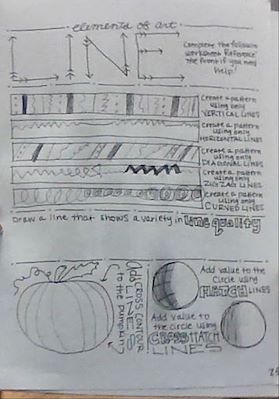 elements of art
LINE
Complete the following
worksheet. Reference
the front if you need
help!
Create a pattern
using only
VERTICAL LINES
Create a pattern
using only
HORIZONTAL LINES
Create a pattern
using only
DIAGONAL LINES
Create a pattern
using only
ZIG ZAG LINES
Create a pattern
using only
CURVED LINES
Draw a line that shows a variety in line quality
Add CROSS CONTOUR
LINES
to the pumpkin!
Add value to the
circle using
HATCH LINES
Add value to
the circle using
CROSS HATCH
LINES